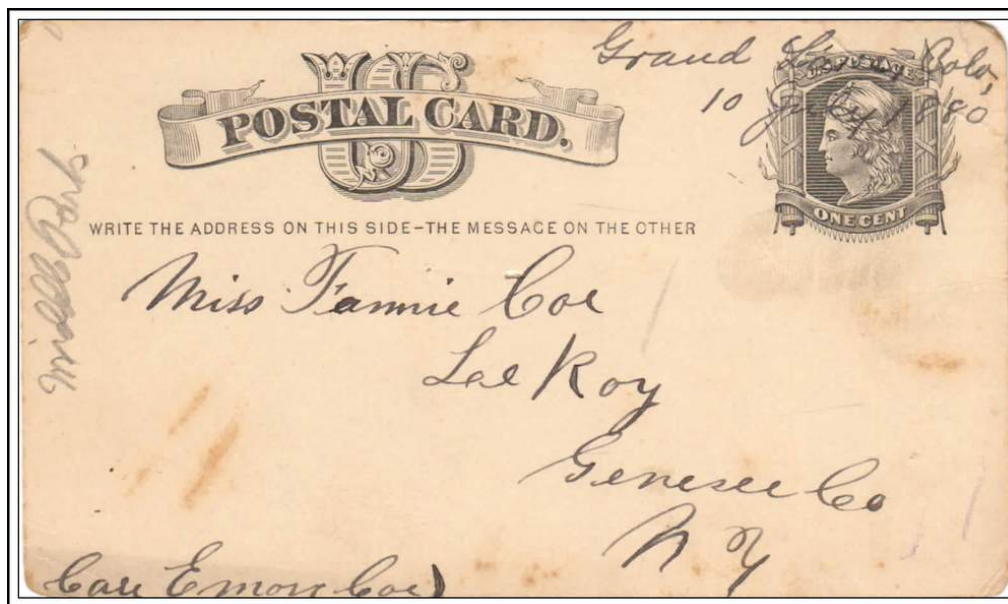 Grand Colo,
10 July 1880
US
POSTAL CARD.
U.S. POSTAGE
ONE CENT
WRITE THE ADDRESS ON THIS SIDE–THE MESSAGE ON THE OTHER
Middle Park
Miss Fannie Coe
Lee Roy
Genesee Co
N Y
Care Emory Coe)